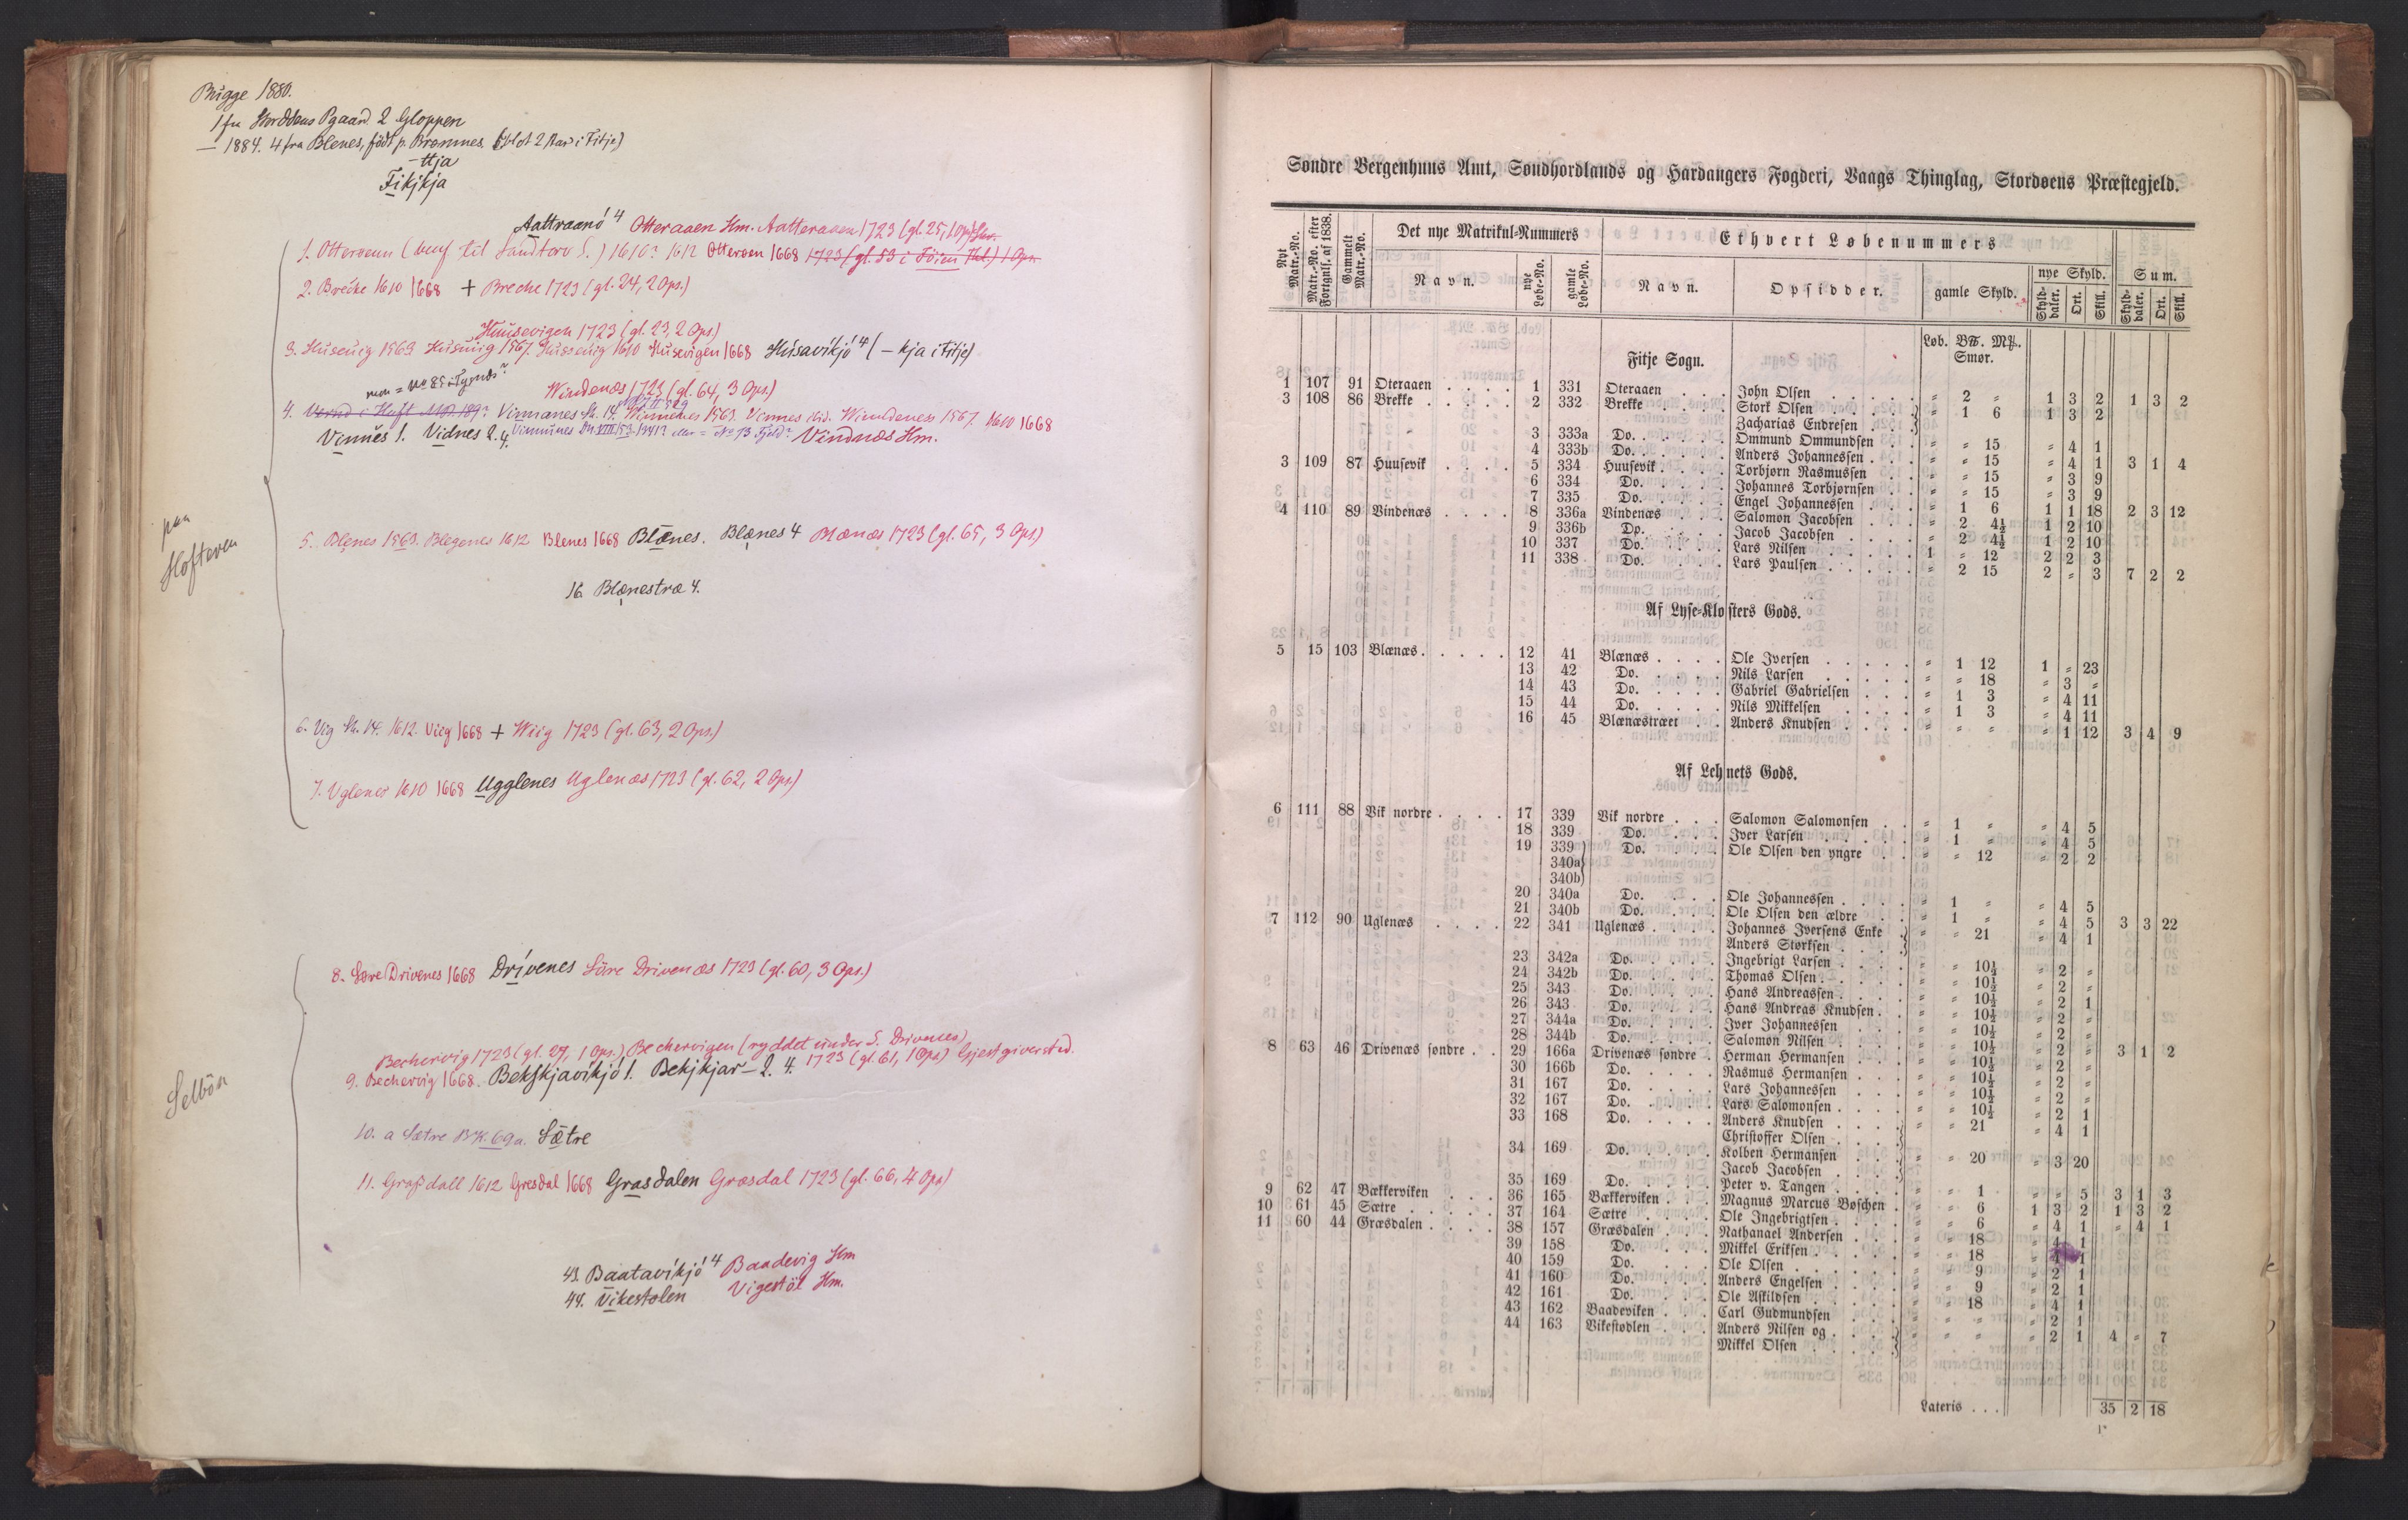 Bugge 1880.
1 fra Storddens Pgaard. 2 Gloppen
— 1884. 4 fra Blenes, født p. Bremnes. (blot 2 Aar i Fitje)
-ttja
Fikjkja
Aattraanó 4 Otteraaen Hm. Aatteraaen 1723 (gl. 25, 1 Ops)
1. Otterøenn ( til Sandtorv S.) 1610? 1612 Otterøen 1668 1723 (gl. 53 i Föien ) 1 Ops.
2. Brecke 1610 1668 + Breche 1723 (gl. 24, 2 Ops.)
Huusevigen 1723 (gl. 23, 2 Ops.)
3. Huseuig 1563 Husuiig 1567. Husseuig 1610 Husevigen 1668 Húsavikjó 4 (– kja i Fitje)
Windenæs 1723 (gl. 64, 3 Ops.)
4. Vinnanes Sk. 14. Winnenes 1563. Vinnes ibid. Winndeness 1567. 1610 1668
Vinnes 1. Vidnes 2. 4. Vindnæs Hm.
paa Hoftøren
5. Blenes 1563. Blegenes 1612 Blenes 1668 Blænes. Blænes 4 Blænæs 1723 (gl. 65, 3 Ops.)
16. Blænestræ 4.
6. Vig Sk. 14. 1612. Viig 1668 + Wiig 1723 (gl. 63, 2 Ops.)
7. Uglenes 1610 1668 Ugglenes Uglenæs 1723 (gl. 62, 2 Ops.)
8. Søre Drivenes 1668 Drívenes Søre Drivenæs 1723 (gl. 60, 3 Ops.)
Bechervig 1723 (gl. 27, 1 Ops.) Bechervigen (ryddet under S. Drivenes)
9. Bechervig 1668. Bekskjavikjó 1. Bekjkjar– 2. 4. 1723 (gl. 61, 1 Ops) Gjestgiversted.
Selbön
10. a Sætre BK. 69a. Sætre
11. Grafsdall 1612 Gresdal 1668 Grasdalen Grasdal 1723 (gl. 66, 4 Ops)
43. Baatavikjó 4 Baadevig Hm
44. Vikestølen Vigestöl Hm.
Søndre Bergenhuus Amt, Søndhordlands og Hardangers Fogderi, Vaags Thinglag, Stordøens Præstegjeld.
Nyt Matr.-No. Matr.-No. efter Fortgnls. af 1838. Gammelt Matr.-No. Det nye Matrikul-Nummers Ethvert Løbenummers
Navn. nye Løbe-No. gamle Løbe-No. Navn. Opsidder. gamle Skyld. nye Skyld. Sum.
Skylddaler. Ort. Skill. Skylddaler. Ort. Skill.
Fitje Sogn. Løb. B℔. M℔. Smør.
1 107 91 Oteraaen . . . . 1 331 Oteraaen . . . John Olsen . . . . . " 2 " 1 3 2 1 3 2
3 108 86 Brekke . . . . . 2 332 Brekke . . . . Stork Olsen . . . . } " 1 6 1 3 2
Zacharias Endresen . . }
3 333a Do. . . . . . Ommund Ommundsen . . " " 15 " 4 1
4 333b Do. . . . . . Anders Johannessen . . . " " 15 " 4 1 3 1 4
3 109 87 Huusevik . . . . 5 334 Huusevik . . . . Torbjørn Rasmussen . . " " 15 " 3 9
6 334 Do. . . . . Johannes Torbjørnsen . . " " 15 " 3 9
7 335 Do. . . . . Engel Johannessen . . . " 1 6 1 1 18 2 3 12
4 110 89 Vindenæs . . . . 8 336a Vindenæs . . . Salomon Jacobsen . . . " 2 4½ 1 2 10
9 336b Do. . . . . Jacob Jacobsen . . . . " 2 4½ 1 2 10
10 337 Do. . . . . Lars Nilsen . . . . . 1 " 12 2 2 3
11 338 Do. . . . . Lars Paulsen . . . . . " 2 15 2 " 3 7 2 2
Af Lyse-Klosters Gods.
5 15 103 Blænæs . . . . . 12 41 Blænæs . . . . Ole Iversen . . . . . " 1 12 1 " 23
13 42 Do. . . . . Nils Larsen . . . . . " " 18 " 3 "
14 43 Do. . . . . Gabriel Gabrielsen . . . " 1 3 " 4 11
15 44 Do. . . . . Nils Mikkelsen . . . . " 1 3 " 4 11
16 45 Blænæstræet . . Anders Knudsen . . . . " " " " 1 12 3 4 9
Af Lehnets Gods.
6 111 88 Vik nordre . . . . 17 339 Vik nordre . . . Salomon Salomonsen . . " 1 " " 4 5
18 339 Do. . . . Iver Larsen . . . . . " 1 " " 4 5
19 339 } Do. . . . Ole Olsen den yngre . . " " 12 " 2 2
340a }
340b }
20 340a Do. . . . Ole Johannessen . . . . " 1 " " 4 5
21 340b Do. . . . Ole Olsen den ældre . . " 1 " " 4 5 3 3 22
7 112 90 Uglenæs . . . . 22 341 Uglenæs . . . . Johannes Iversens Enke } " " 21 " 4 1
Anders Størksen . . . }
23 342a Do. . . . . Ingebrigt Larsen . . . . " " 10½ " 2 "
24 342b Do. . . . . Thomas Olsen . . . . . " " 10½ " 2 "
25 343 Do. . . . . Hans Andreassen . . . . " " 10½ " 2 1
26 343 Do. . . . . Hans Andreas Knudsen . . " " 10½ " 2 "
27 344a Do. . . . . Iver Johannessen . . . " " 10½ " 2 "
28 344b Do. . . . . Salomon Nilsen . . . . " " 10½ " 2 " 3 1 2
8 63 46 Drivenæs søndre . . 29 166a Drivenæs søndre . Herman Hermansen . . . " " 10½ " 2 "
30 166b Do. . . . . Rasmus Hermansen . . . " " 10½ " 2 "
31 167 Do. . . . . Lars Johannessen . . . " " 10½ " 2 "
32 167 Do. . . . . Lars Salomonsen . . . . " " 10½ " 2 1
33 168 Do. . . . . Anders Knudsen . . . } " " 21 " 4 1
Christoffer Olsen . . . }
34 169 Do. . . . . Kolben Hermansen . . } " " 20 " 3 20
Jacob Jacobsen . . . }
35 169 Do. . . . . Peter v. Tangen . . . . " " 1 " " 5 3 1 3
9 62 47 Bækkerviken . . . 36 165 Bækkerviken . . . Magnus Marcus Bøschen . " " 6 1 3 2 1 3 2
10 61 45 Sætre . . . . . 37 164 Sætre . . . . Ole Ingebrigtsen . . . . " " 6 " 4 1 " 4 1
11 60 44 Græsdalen . . . . 38 157 Græsdalen . . . Nathanael Andersen . . . " " 18 " 4 1
39 158 Do. . . . Mikkel Eriksen . . . . . " " 18 " 4 1
40 159 Do. . . . Ole Olsen . . . . . . " " 9 " 2 1
41 160 Do. . . . Anders Engelsen . . . . " " 9 " 2 1
42 161 Do. . . . Ole Askildsen . . . . . " " 18 " 4 1
43 162 Baadeviken . . . Carl Gudmundsen . . . " " " " 2 1
44 163 Vikestødlen . . . Anders Nilsen og . . . } " " " " 2 1 4 " 7
Mikkel Olsen . . . . }
Lateris . . . 35 2 18